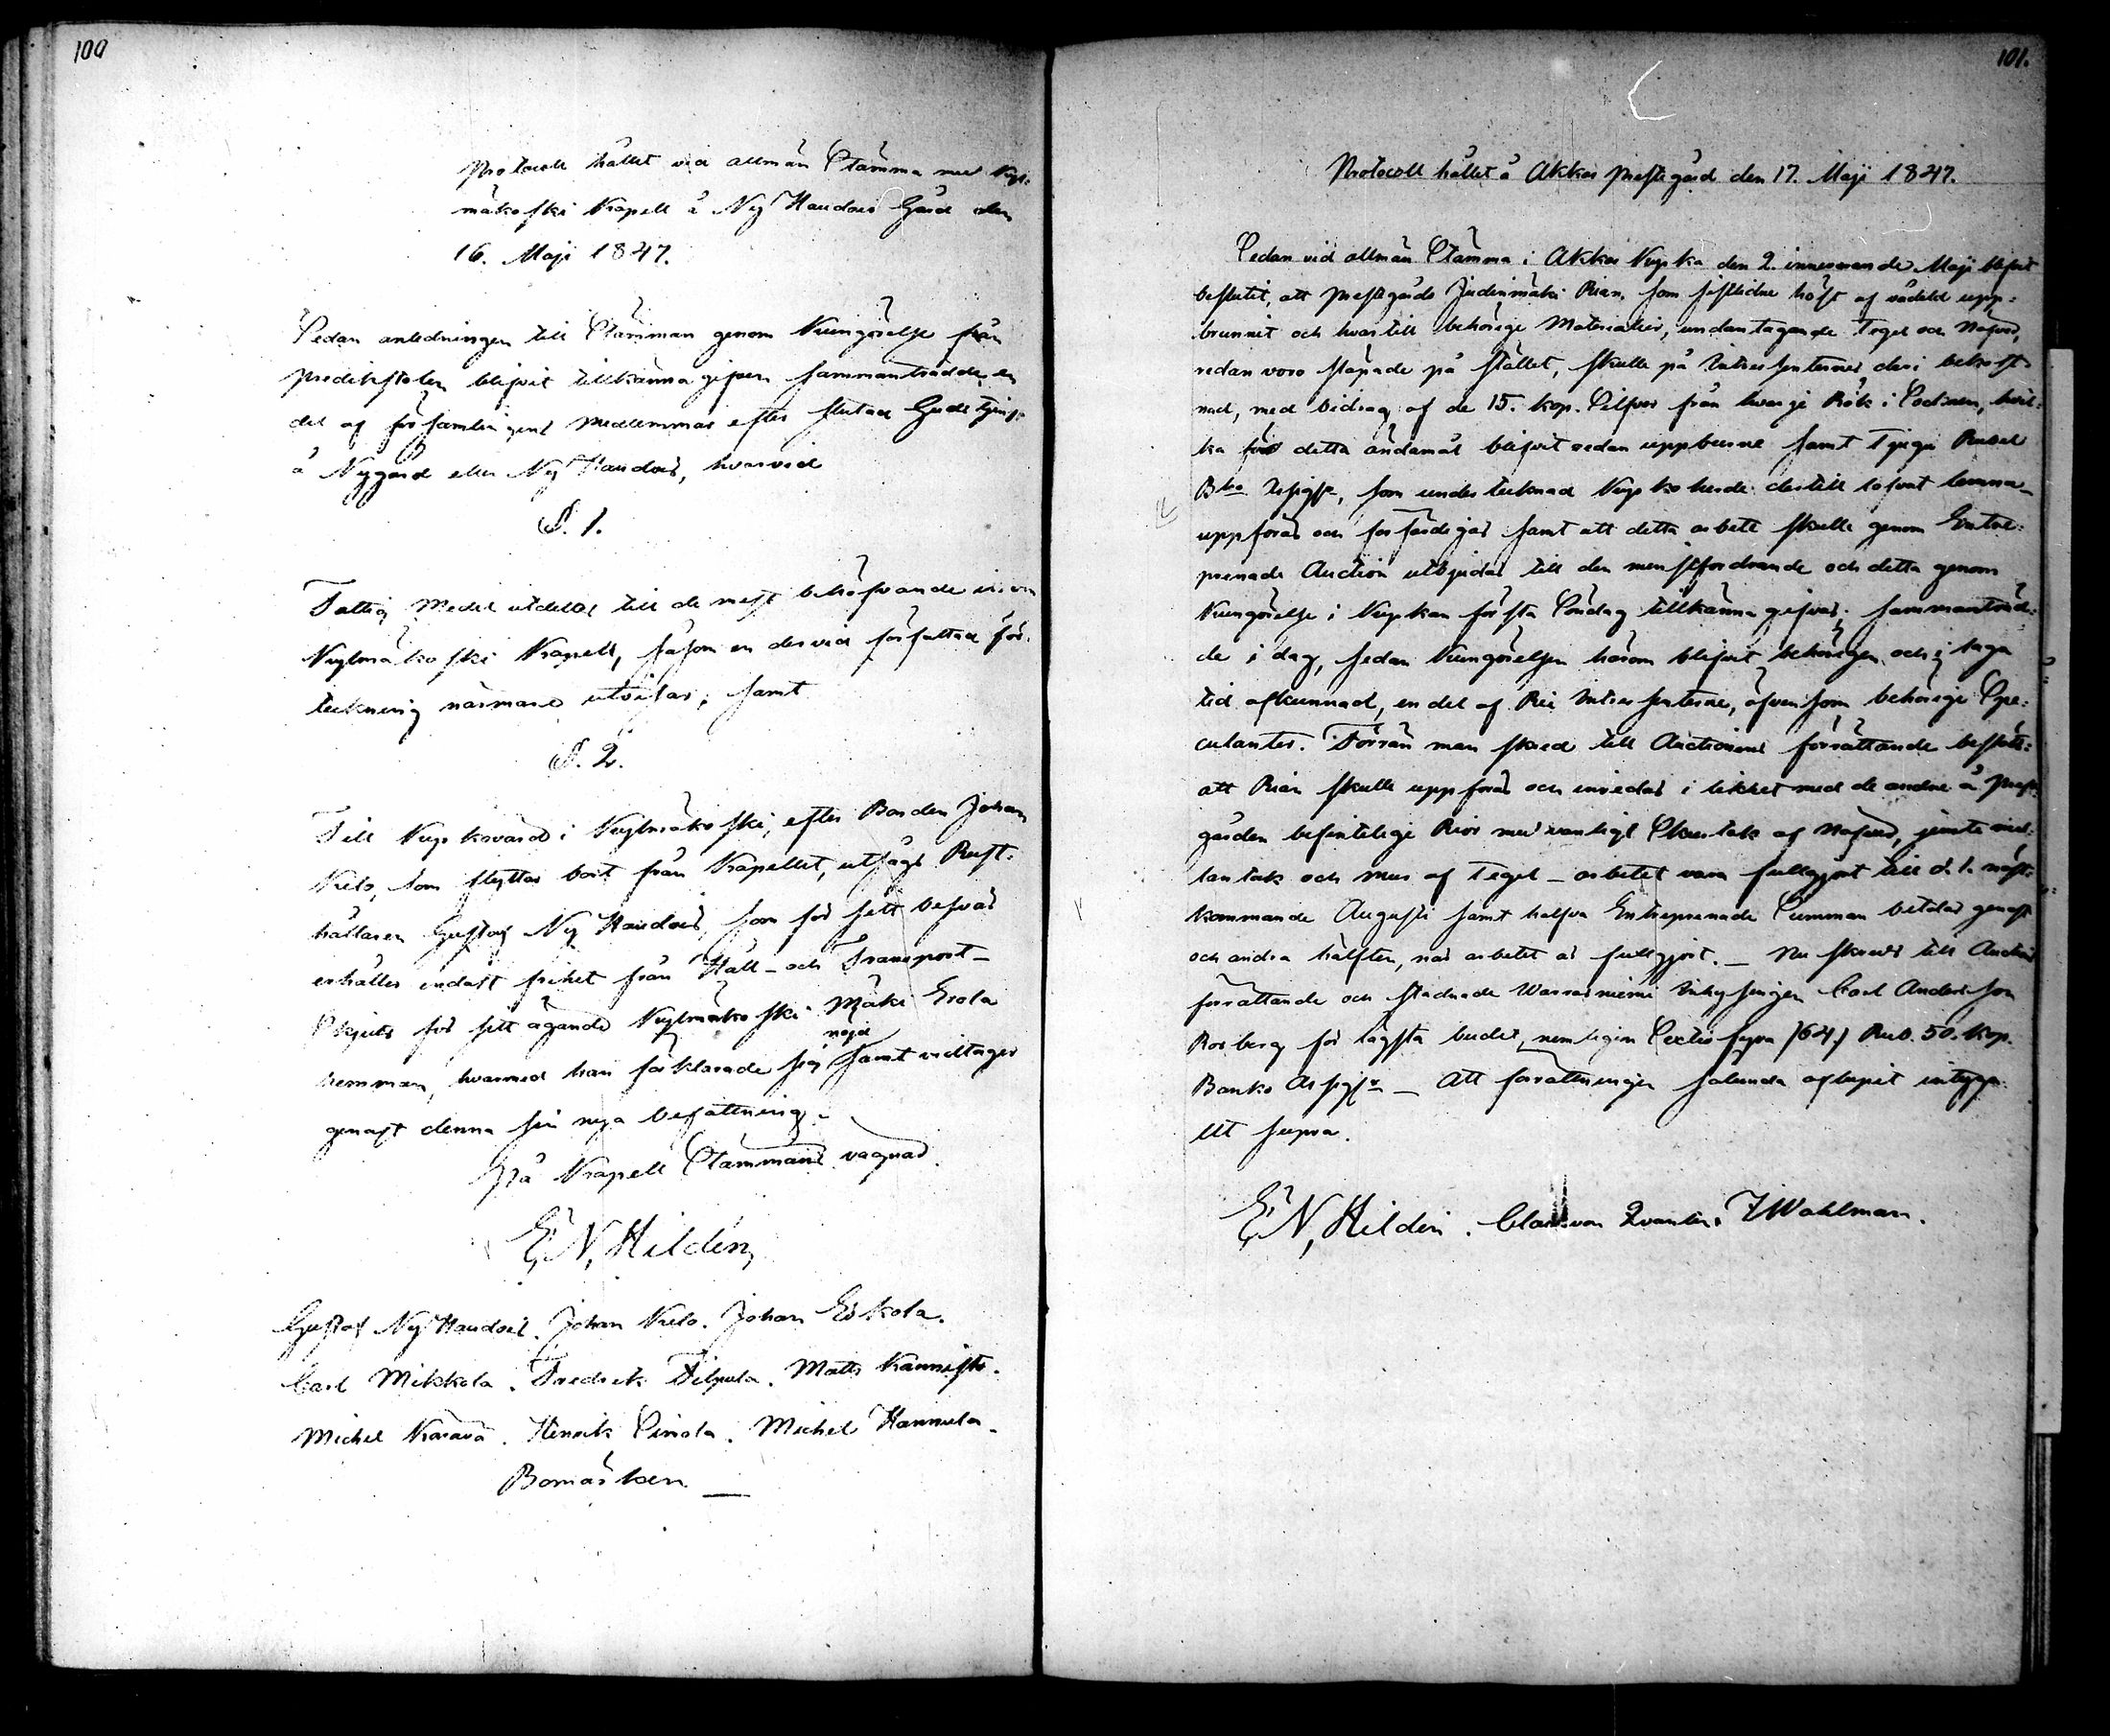 100
Protocoll hållet vid allmän Stämma med Kyl:
mäkoski Kapell å Ny Handois Gård den
16. Maji 1847.
Sedan anledningen till Stämman genom Kungörelse från
predikstolen blifvit tillkännagifven sammanträdde en
del af församlingens medlemmar efter slutad Gudstjenst
å Nygård eller Ny Handois, hvarvid
S. 1.
Fattig Medel utdeltes till de mest behöfvande inom
Kylmäkoski Kapell, såsom en dervid författad för:
teckning närmare utvisar; samt
S. 2.
Till Kyrkovärd i Kylmäkoski, efter Bonden Johan
Kelo, som flyttar bort från Kapellet, utsågs Rust:
hållaren Gustaf Ny Handois, som för sitt besvär
erhåller endast frihet från Håll- och Transport-
Skjuts för sitt ägande Kylmäkoski Mäki Erola
hemman, hvarmed han förklarade sig nöjd samt vidtager
genast denna sin nya befattning.
På Kapell Stämmans vägnar
E, N, Hildén,
Gustaf Ny Handois. Johan Kelo. Johan Eskola.
Carl Mikkola. Fredrik Filpula. Matts Kannisto.
Michel Karava. Henrik Simola. Michel Hannula.
Bomärken. —
101.
Protocoll hållet å Akkas prestgård den 17. Maji 1847.
Sedan vid allmän Stämma i Akkas Kyrka den 2. innevarande Maji blifvit
beslutit, att prestgårds Judinmäki Rian, som sistledne höst af vådeld upp:
brunnit och hvartill behörige Materialier, undantagande Tegel och Näfver,
redan voro släpade på stället, skulle på Intressenternes deri bekost:
nad, med bidrag af de 15. kop. Silfver från hvarje Rök i Socknen, hvil:
ka för detta ändamål blifvit redan uppburne samt Tjugu Rubel
Bko Assign, som undertecknad Kyrkoherde dertill lofvat lemna
uppföras och förfärdigas samt att detta arbete skulle genom Entre:
prenade Auction utbjudas till den minstfordrande och detta genom
Kungörelse i Kyrkan första Söndag tillkännagifvas; sammanträd:
de i dag, sedan Kungörelsen härom blifvit behörigen och i laga
tid afkunnad, en del af Rie Intressenterne, äfvensom behörige Spe:
culanter. Förrän man skred till Auctionens förrättande beslöts:
att Rian skulle uppföras och inredas i likhet med de andre å prest
gården befintelige Rior med vanligt tak af Näfver, jemte mel:
lantak och mur af Tegel – arbetet vara fullgjort till d. 1. näst:
kommande Augusti samt halfva Entreprenade Summan betalas genast
och andra hälften, när arbetet är fullgjort. – Nu skreds till Auctions
förrättande och stadnade Warrasniemi Inhysingen Carl Andersson
Rosberg för lägsta budet, nemligen Sextiofyra (64.) Rub. 50. Kop.
Banko Assign – Att förrättningen sålunda aflupit intyga
Ut supra.
E, N, Hildén. Clas von Qvanten. J Wahlman.